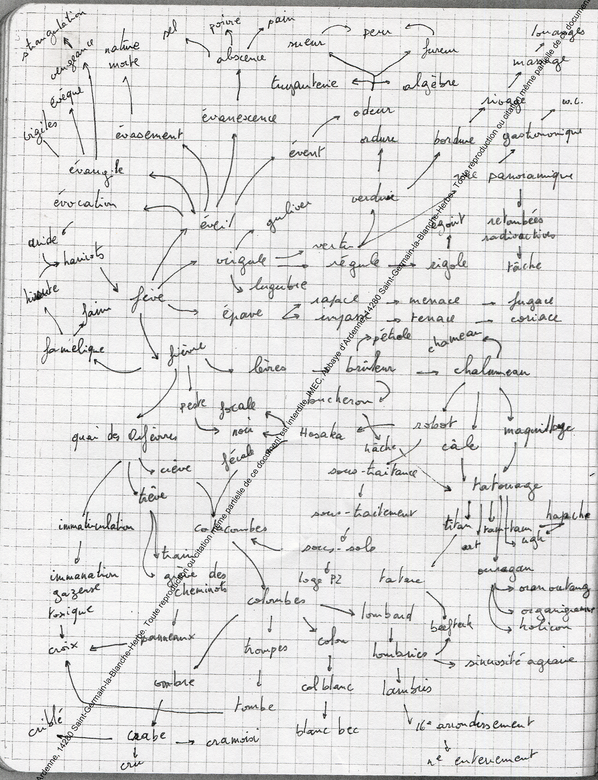 strangulation
sel
poivre
pain
sueur
peur
fureur
louanges
vengeance
nature
morte
absence
massage
évêque
truanterie
algèbre
rivage
w.c.
vigiles
évasement
évanescence
odeur
ordure
bordure
gastronomique
évangile
évent
panoramique
évocation
éveil
guliver
verdure
égout
retombées
radioactives
aride
haricots
virgule
vertu
régule
rigole
tâche
hirsute
fève
lugubre
rapace
menace
fugace
faim
épave
tenace
coriace
famélique
fièvre
pétrole
chameau
lèvres
brûleur
chalumeau
peste
focale
bucheron
quai des Orfèvres
noix
Hosaka
robot
maquillage
fécale
hâche
câle
crève
sous-traitance
trêve
tatouage
immatriculation
catacombes
sous-traitement
titan
tam-tam
hapache
ugh
art
train
sous-sol
immanation
gazeuse
toxique
grève des
cheminots
loge P2
tatare
ouragan
orang outang
colombes
lombard
organigramme
hélicon
croix
panneaux
trompes
colon
beefteack
lombrics
sinuosité agraire
ombre
col blanc
lambris
tombe
criblé
crabe
cramoisi
blanc bec
16e arrondissement
cru
ne enterrement
Ardenne, 14280 Saint-Germain-la-Blanche-Herbe. Toute reproduction ou citation même partielle de ce document est interdite. IMEC, Abbaye d'Ardenne, 14280 Saint-Germain-la-Blanche-Herbe. Toute reproduction ou citation même partielle de ce document